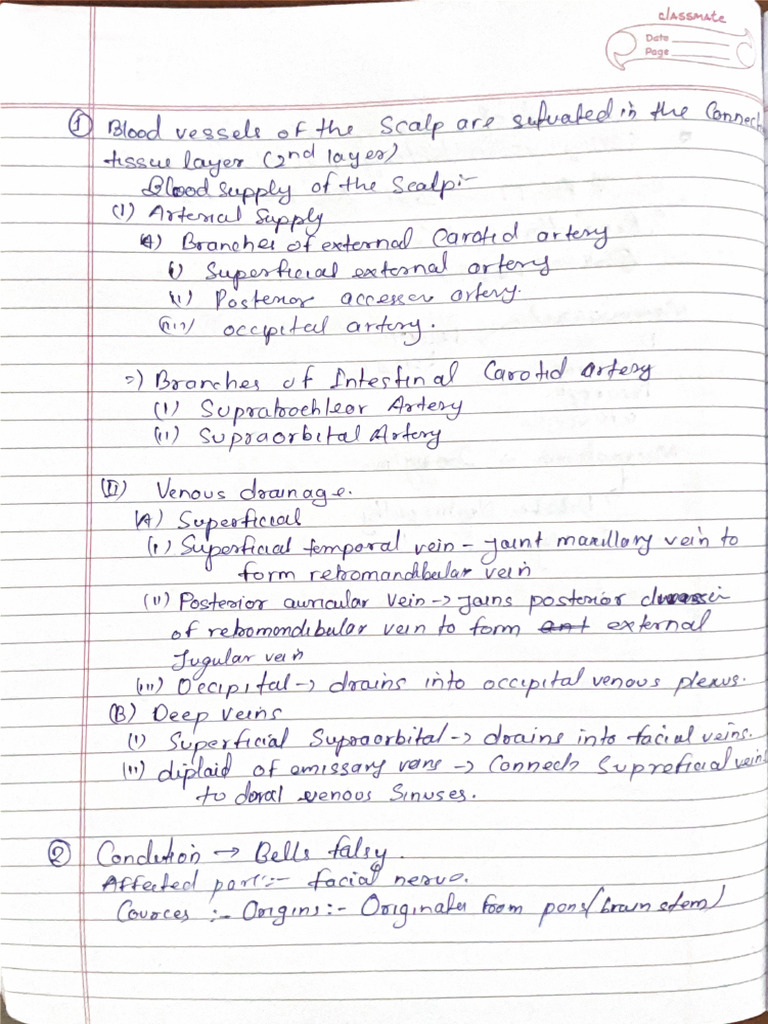 classmate
Date
Page
① Blood vessels of the Scalp are situated in the Connect
tissue layer (2nd layer)
Blood supply of the Scalp:-
(I) Arterial Supply
A) Branches of external Carotid artery
i) Superficial external artery
ii) Posterior accesser artery.
(iii) occipital artery.
=) Branches of Intestinal Carotid artery
(i) Supratrochlear Artery
(ii) Supraorbital Artery
(II) Venous drainage.
(A) Superficial
(i) Superficial temporal vein - joint maxillary vein to
form retromandibular vein
(ii) Posterior auricular vein → joins posterior
of retromondibular vein to form external
Jugular vein
(iii) Occipital → drains into occipital venous plexus.
(B) Deep veins
(i) Superficial Supraorbital → drains into facial veins.
(ii) diplaid of emissary vens → Connects Supreficial vein
to doral venous Sinuses.
② Condition → Bells falsy.
Affected part :- facial nerve.
Cources :- Origins :- Originates from pons (brain stem)